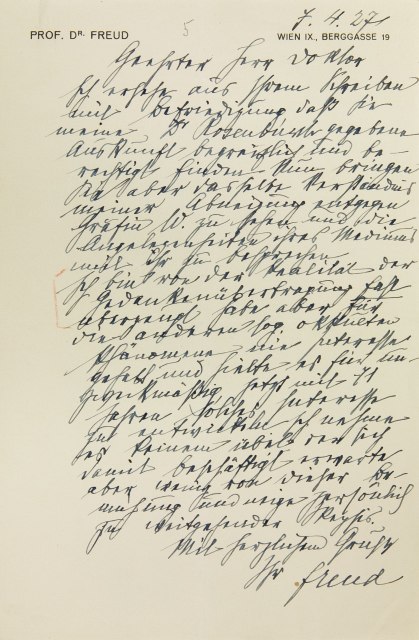 7. 4. 27
PROF. DR. FREUD
WIEN IX., BERGGASSE 19
5
Geehrter Herr Doktor
Ich ersehe aus Ihrem Schreiben
mit Befriedigung daß Sie
meine Dr gegebene
Auskunft begreiflich und be-
rechtigt finden. Nun bringen
Sie aber dasselbe Verständnis
meiner Abneigung entgegen
Gräfin W. zu sehen und die
Angelegenheiten ihres Mediums
mit Ihr zu besprechen.
Ich bin von der Realität der
Gedankenübertragung fast
überzeugt habe aber für
die anderen sog. okkulten
Phänomene nie Interesse
gehabt und hielte es für un-
zweckmäßig jetzt mit 71
Jahren solches Interesse
zu entwickeln. Ich nehme
es keinem übel der sich
damit beschäftigt erwarte
aber wenig von dieser Be-
mühung und neige persönlich
zu weitgehender Skepsis.
Mit herzlichem Gruß
Ihr Freud